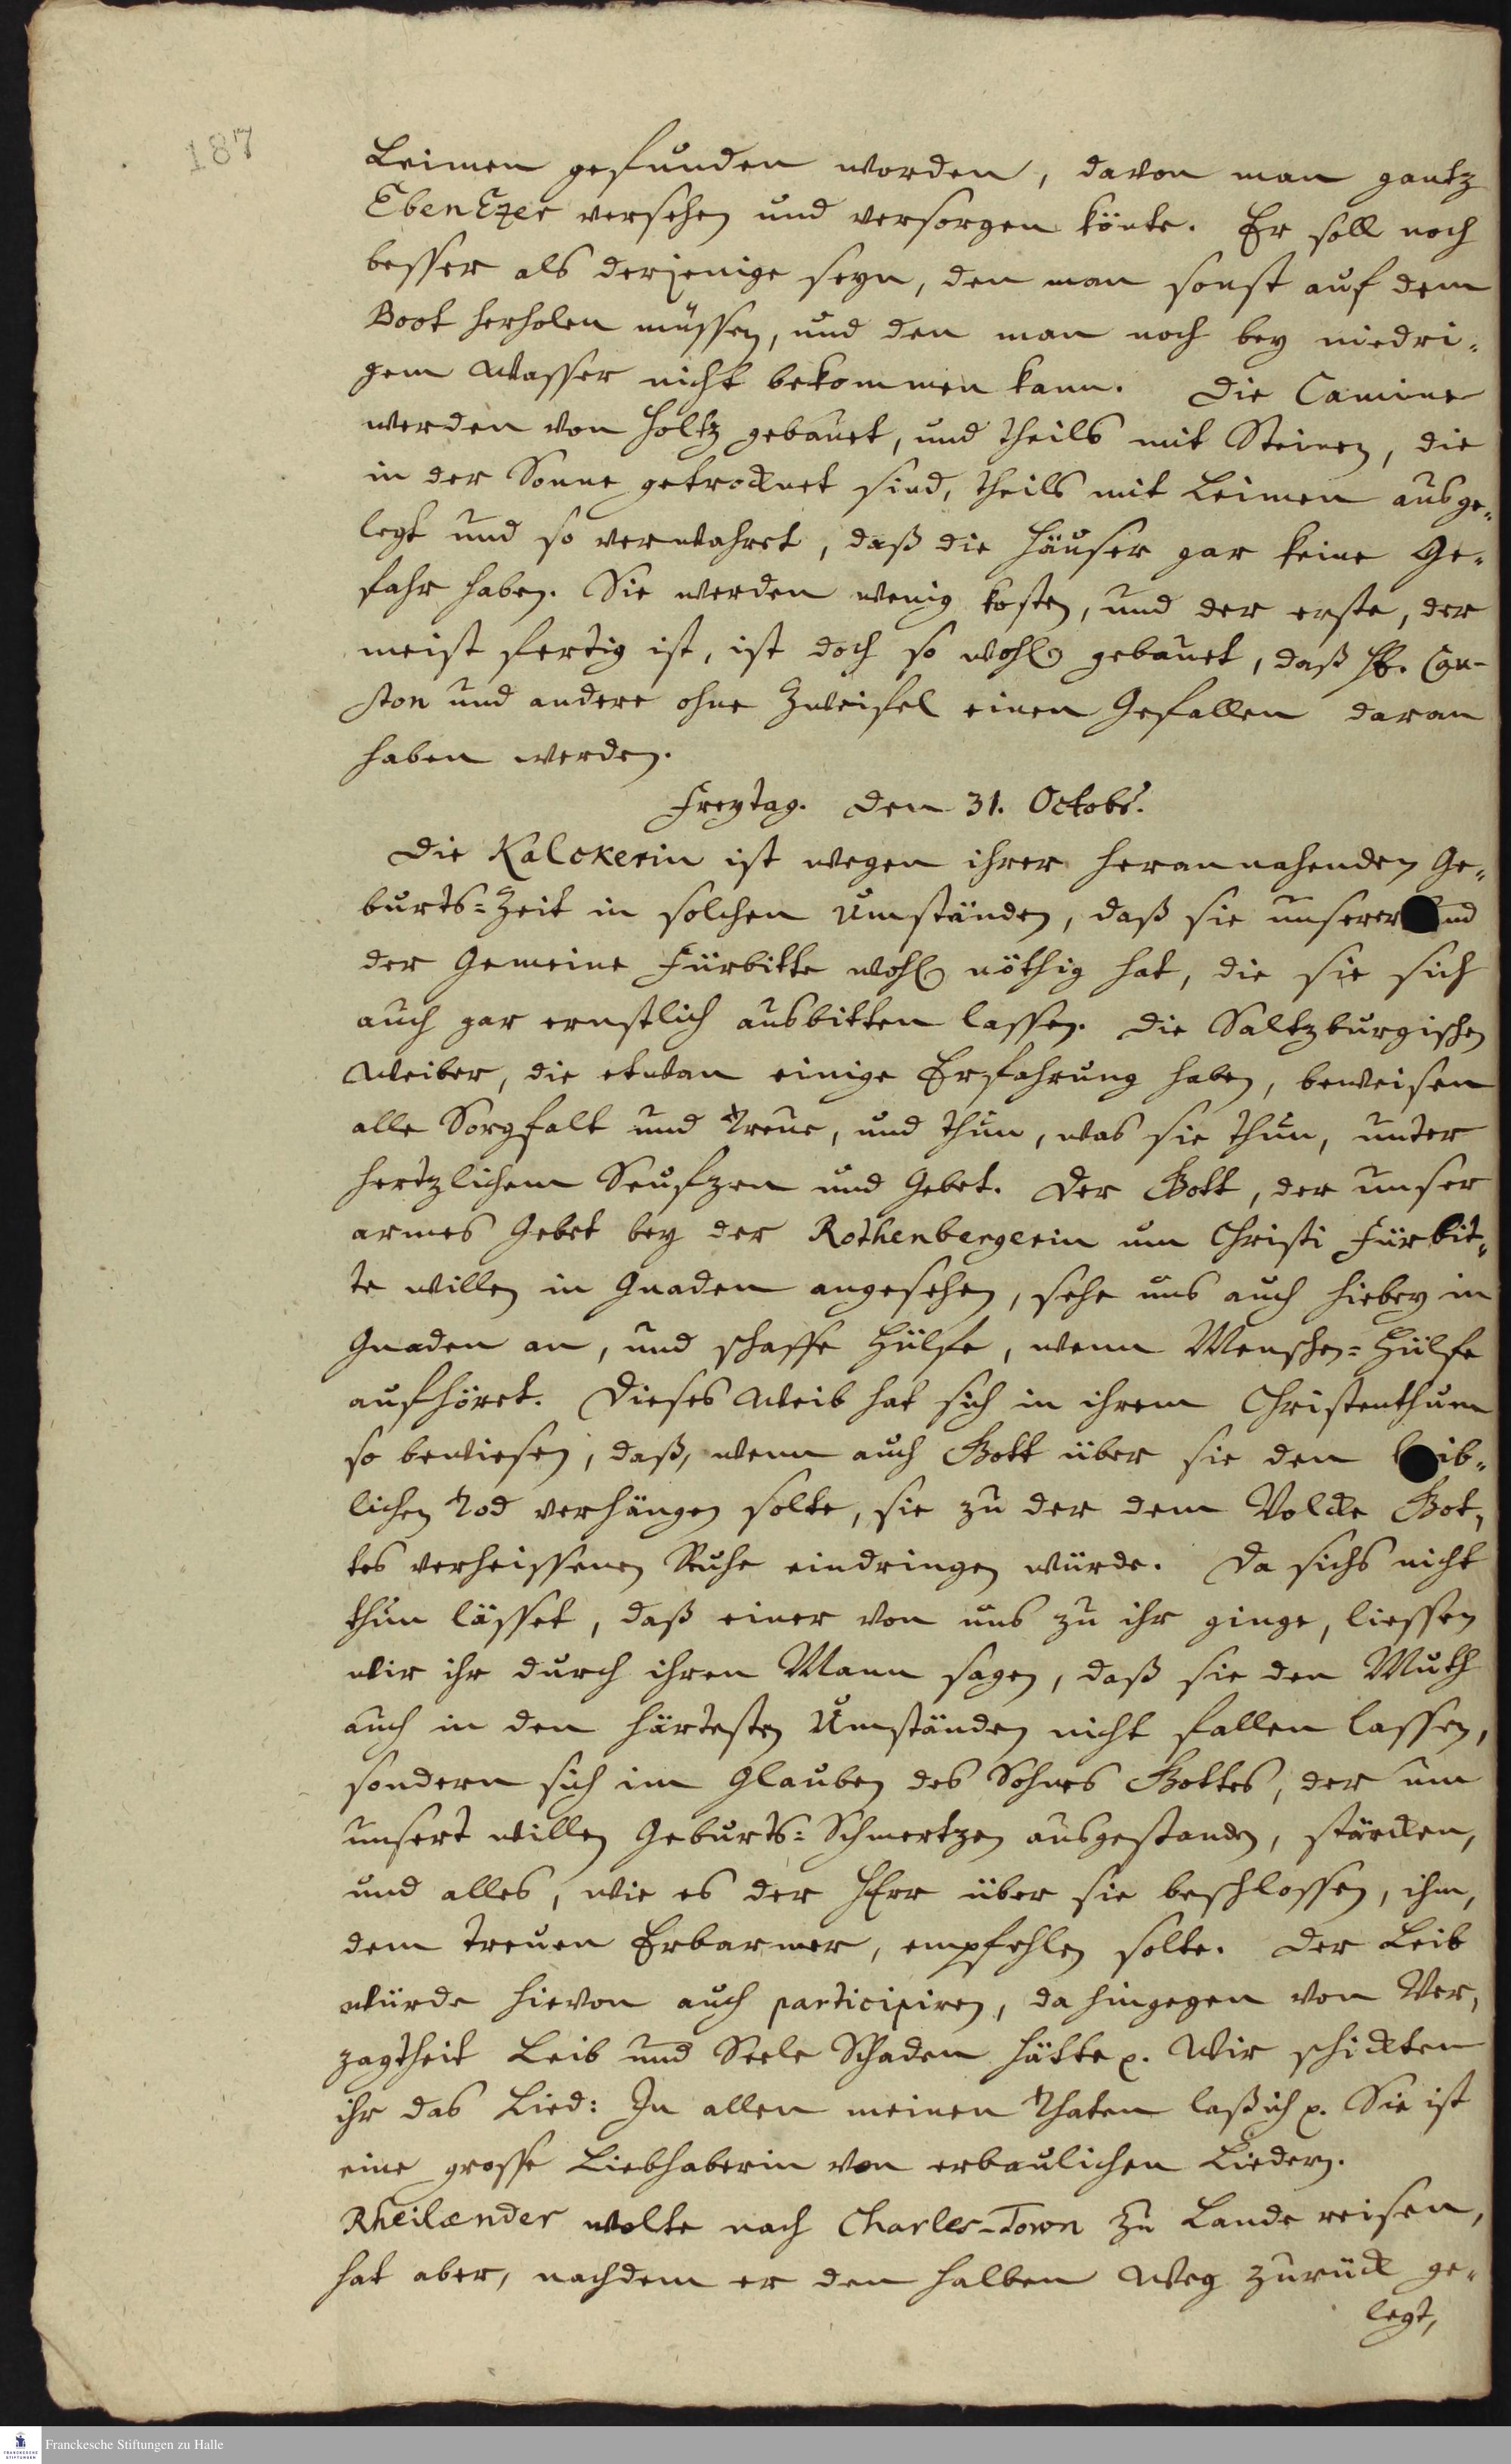 187
Leimen gefunden worden, davon man gantz
EbenEzer versehen und versorgen könte. Er soll noch
besser als derjenige seyn, den man sonst auf dem
Boot herholen müssen, und den man noch bey niedri-
gem Wasser nicht bekommen kann. Die Camine
werden von Holtz gebauet, und theils mit Steinen, die
in der Sonne getrocknet sind, theils mit Leimen ausge-
legt und so verwahret, daß die Häuser gar keine Ge-
fahr haben. Sie werden wenig kosten, und der erste, der
meist fertig ist, ist doch so wohl gebauet, daß Hr. Cau-
ston und andere ohne Zweifel einen Gefallen daran
haben werden.
Freytag. den 31. Octobr.
Die Kalckerin ist wegen ihrer herannahenden Ge-
burts-Zeit in solchen Umständen, daß sie unserer und
der Gemeine Fürbitte wohl nöthig hat, die sie sich
auch gar ernstlich ausbitten lassen. Die Saltzburgischen
Weiber, die etwan einige Erfahrung haben, beweisen
alle Sorgfalt und Treue, und thun, was sie thun, unter
hertzlichem Seufzen und Gebet. Der Gott, der unser
armes Gebet bey der Rothenbergerin um Christi Fürbit-
te willen in Gnaden angesehen, sehe uns auch hiebey in
Gnaden an, und schaffe Hülfe, wenn Menschen-Hülfe
aufhöret. Dieses Weib hat sich in ihrem Christenthum
so bewiesen, daß, wenn auch Gott über sie den leib-
lichen Tod verhängen solte, sie zu der dem Volcke Got-
tes verheissenen Ruhe eindringen würde. Da sichs nicht
thun lässet, daß einer von uns zu ihr ginge, liessen
wir ihr durch ihren Mann sagen, daß sie den Muth
auch in den härtesten Umständen nicht fallen lassen,
sondern sich im Glauben des Sohnes Gottes, der um
unsert willen Geburts-Schmertzen ausgestanden, stärcken,
und alles, wie es der HErr über sie beschlossen, ihm,
dem treuen Erbarmer, empfehlen solte. Der Leib
würde hievon auch participiren, da hingegen von Ver-
zagtheit Leib und Seele Schaden hätte p. Wir schickten
ihr das Lied: In allen meinen Thaten laß ich p. Sie ist
eine grosse Liebhaberin von erbaulichen Liedern.
Rheilænder wolte nach Charles-Town zu Lande reisen,
hat aber, nachdem er den halben Weg zurück ge-
legt,
Franckesche Stiftungen zu Halle